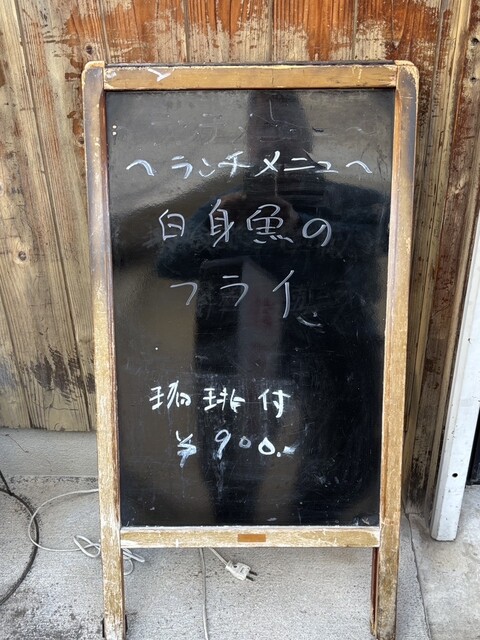 〜ランチメニュー〜
白身魚の
フライ
珈琲付
¥900.-